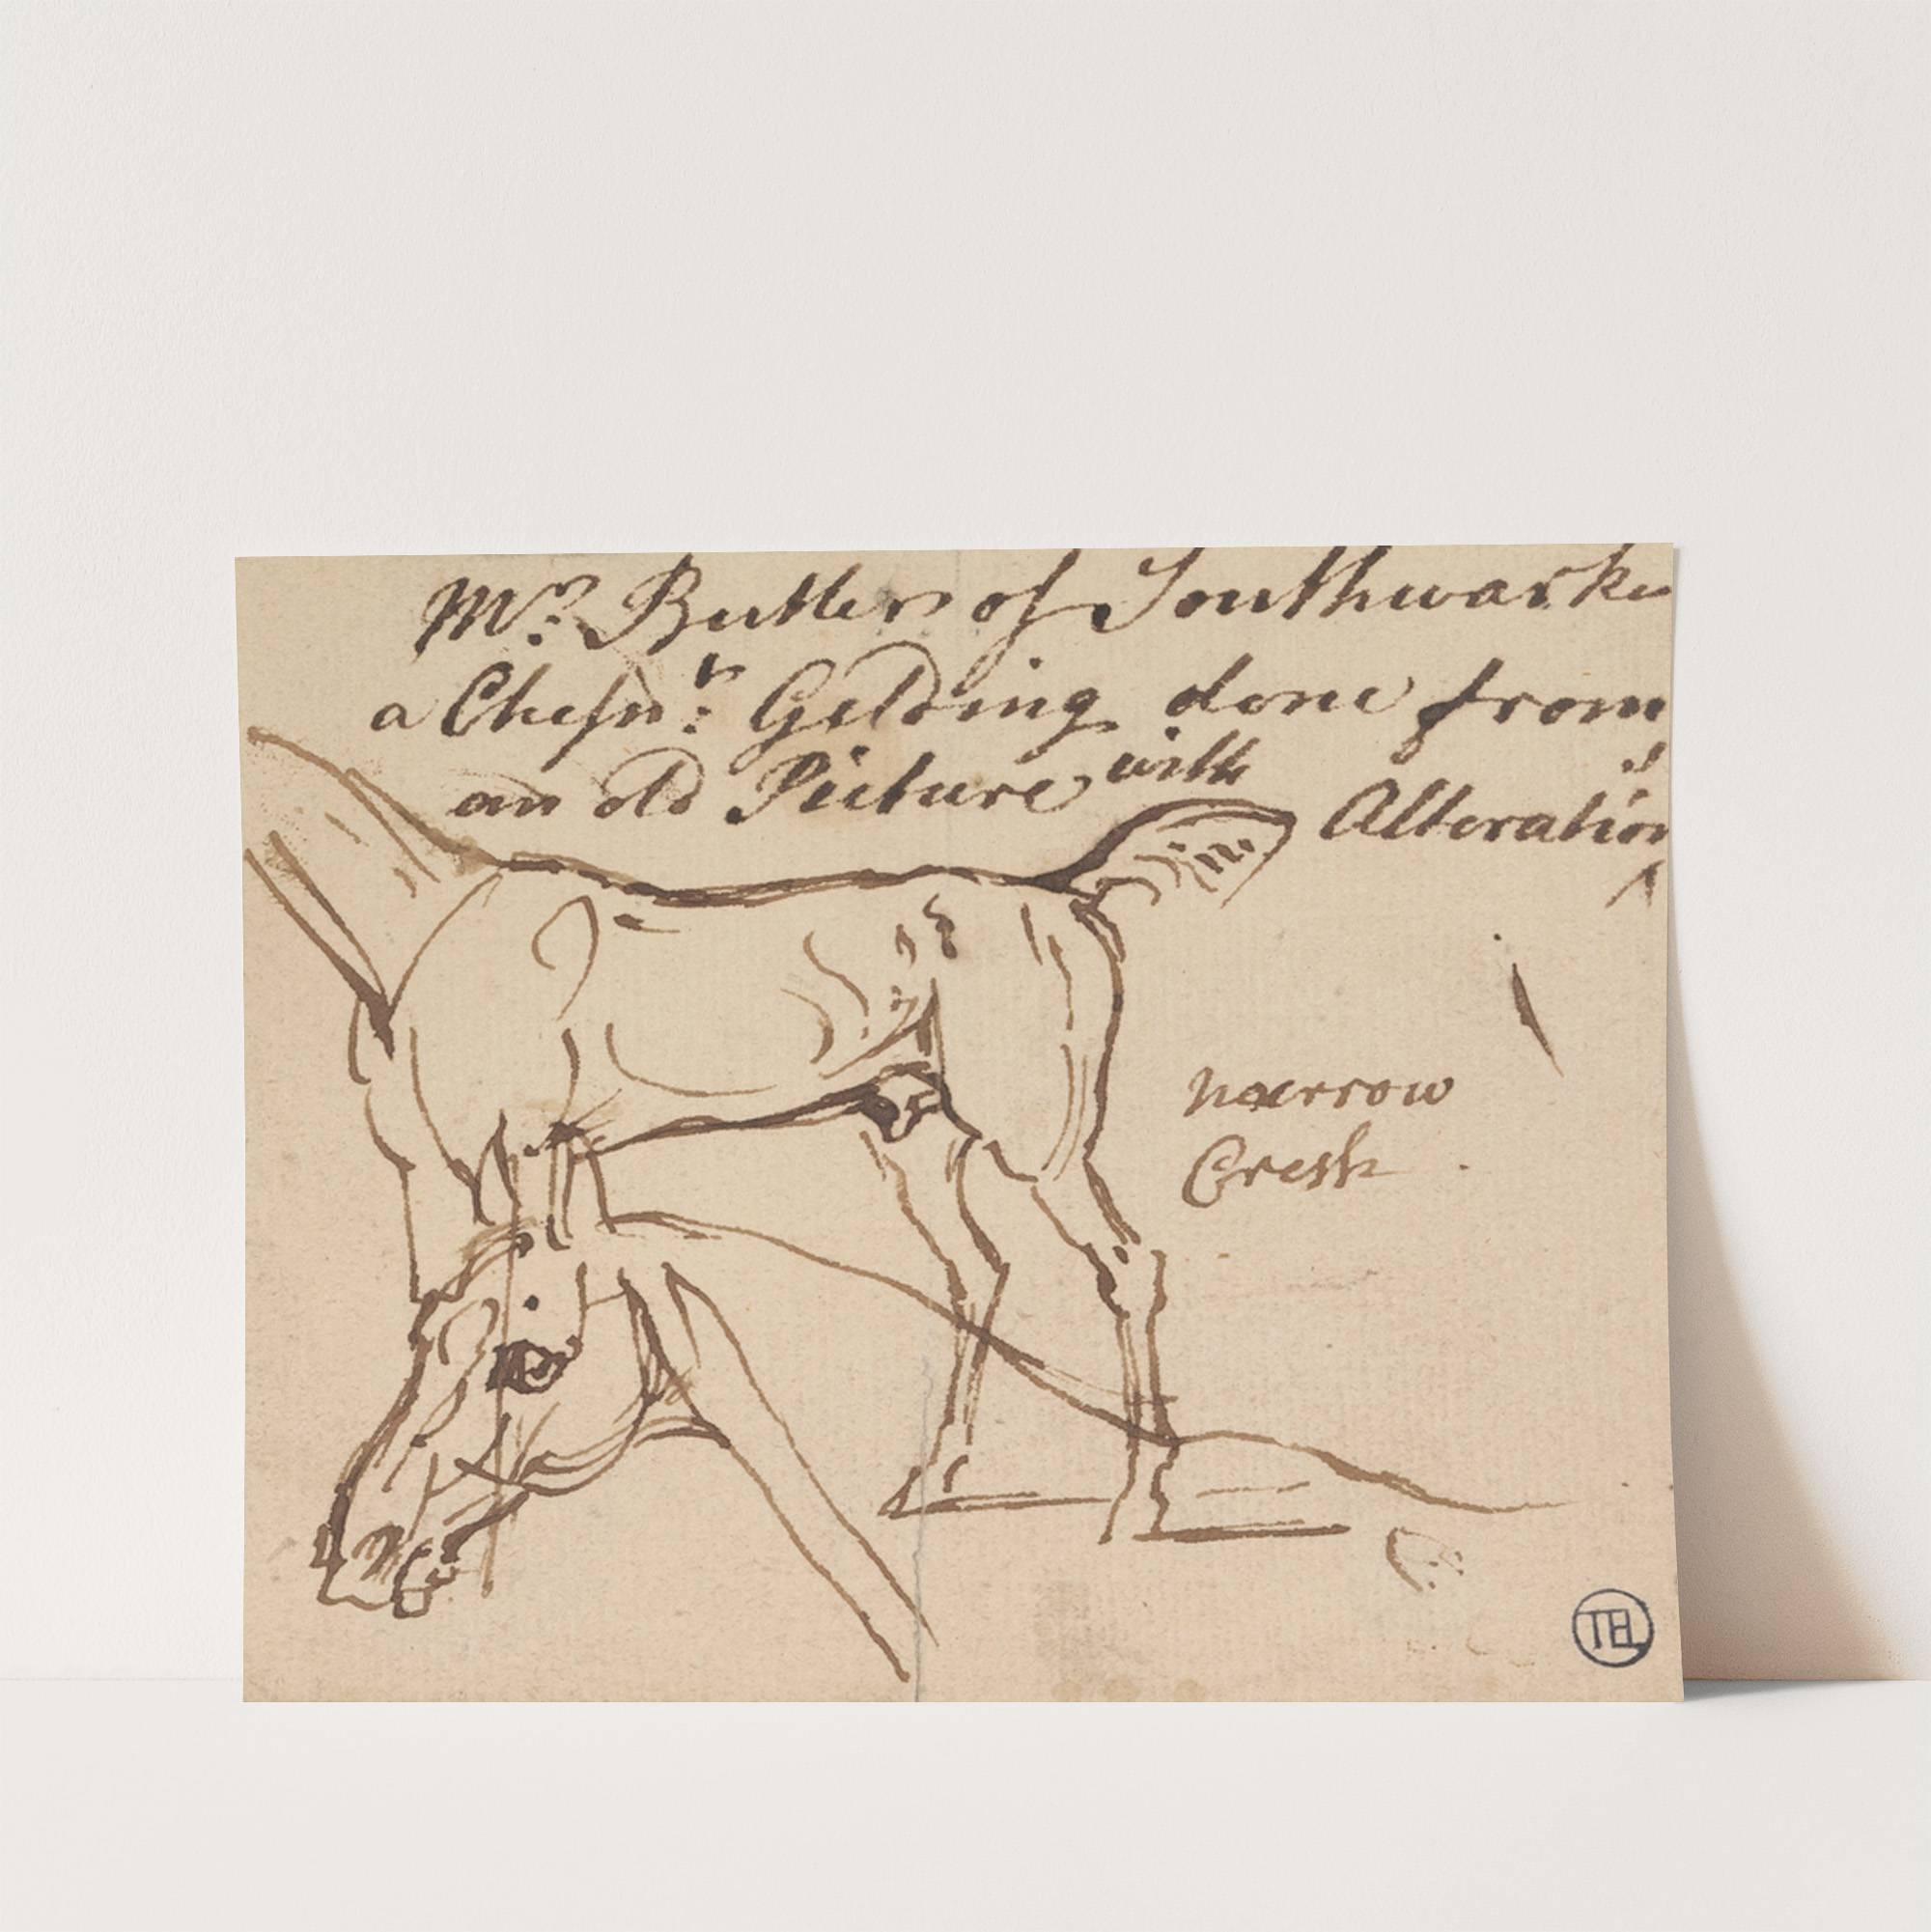 Mr. Butler of Southwark
a Chesn.t Gelding done from
an old Picture with Alteration
narrow
Cresh
TEL